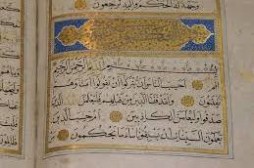 وجهه له الحكم واليه ترجعون
بسم الله الرحمن الرحيم
الم احسب الناس ان يتركوا ان يقولوا امنا وهم لا
يفتنون ولقد فتنا الذين من قبلهم فليعلمن الله الذين
صدقوا وليعلمن الكاذبين ام حسب الذين
يعملون السيئات ان يسبقونا ساء ما يحكمون